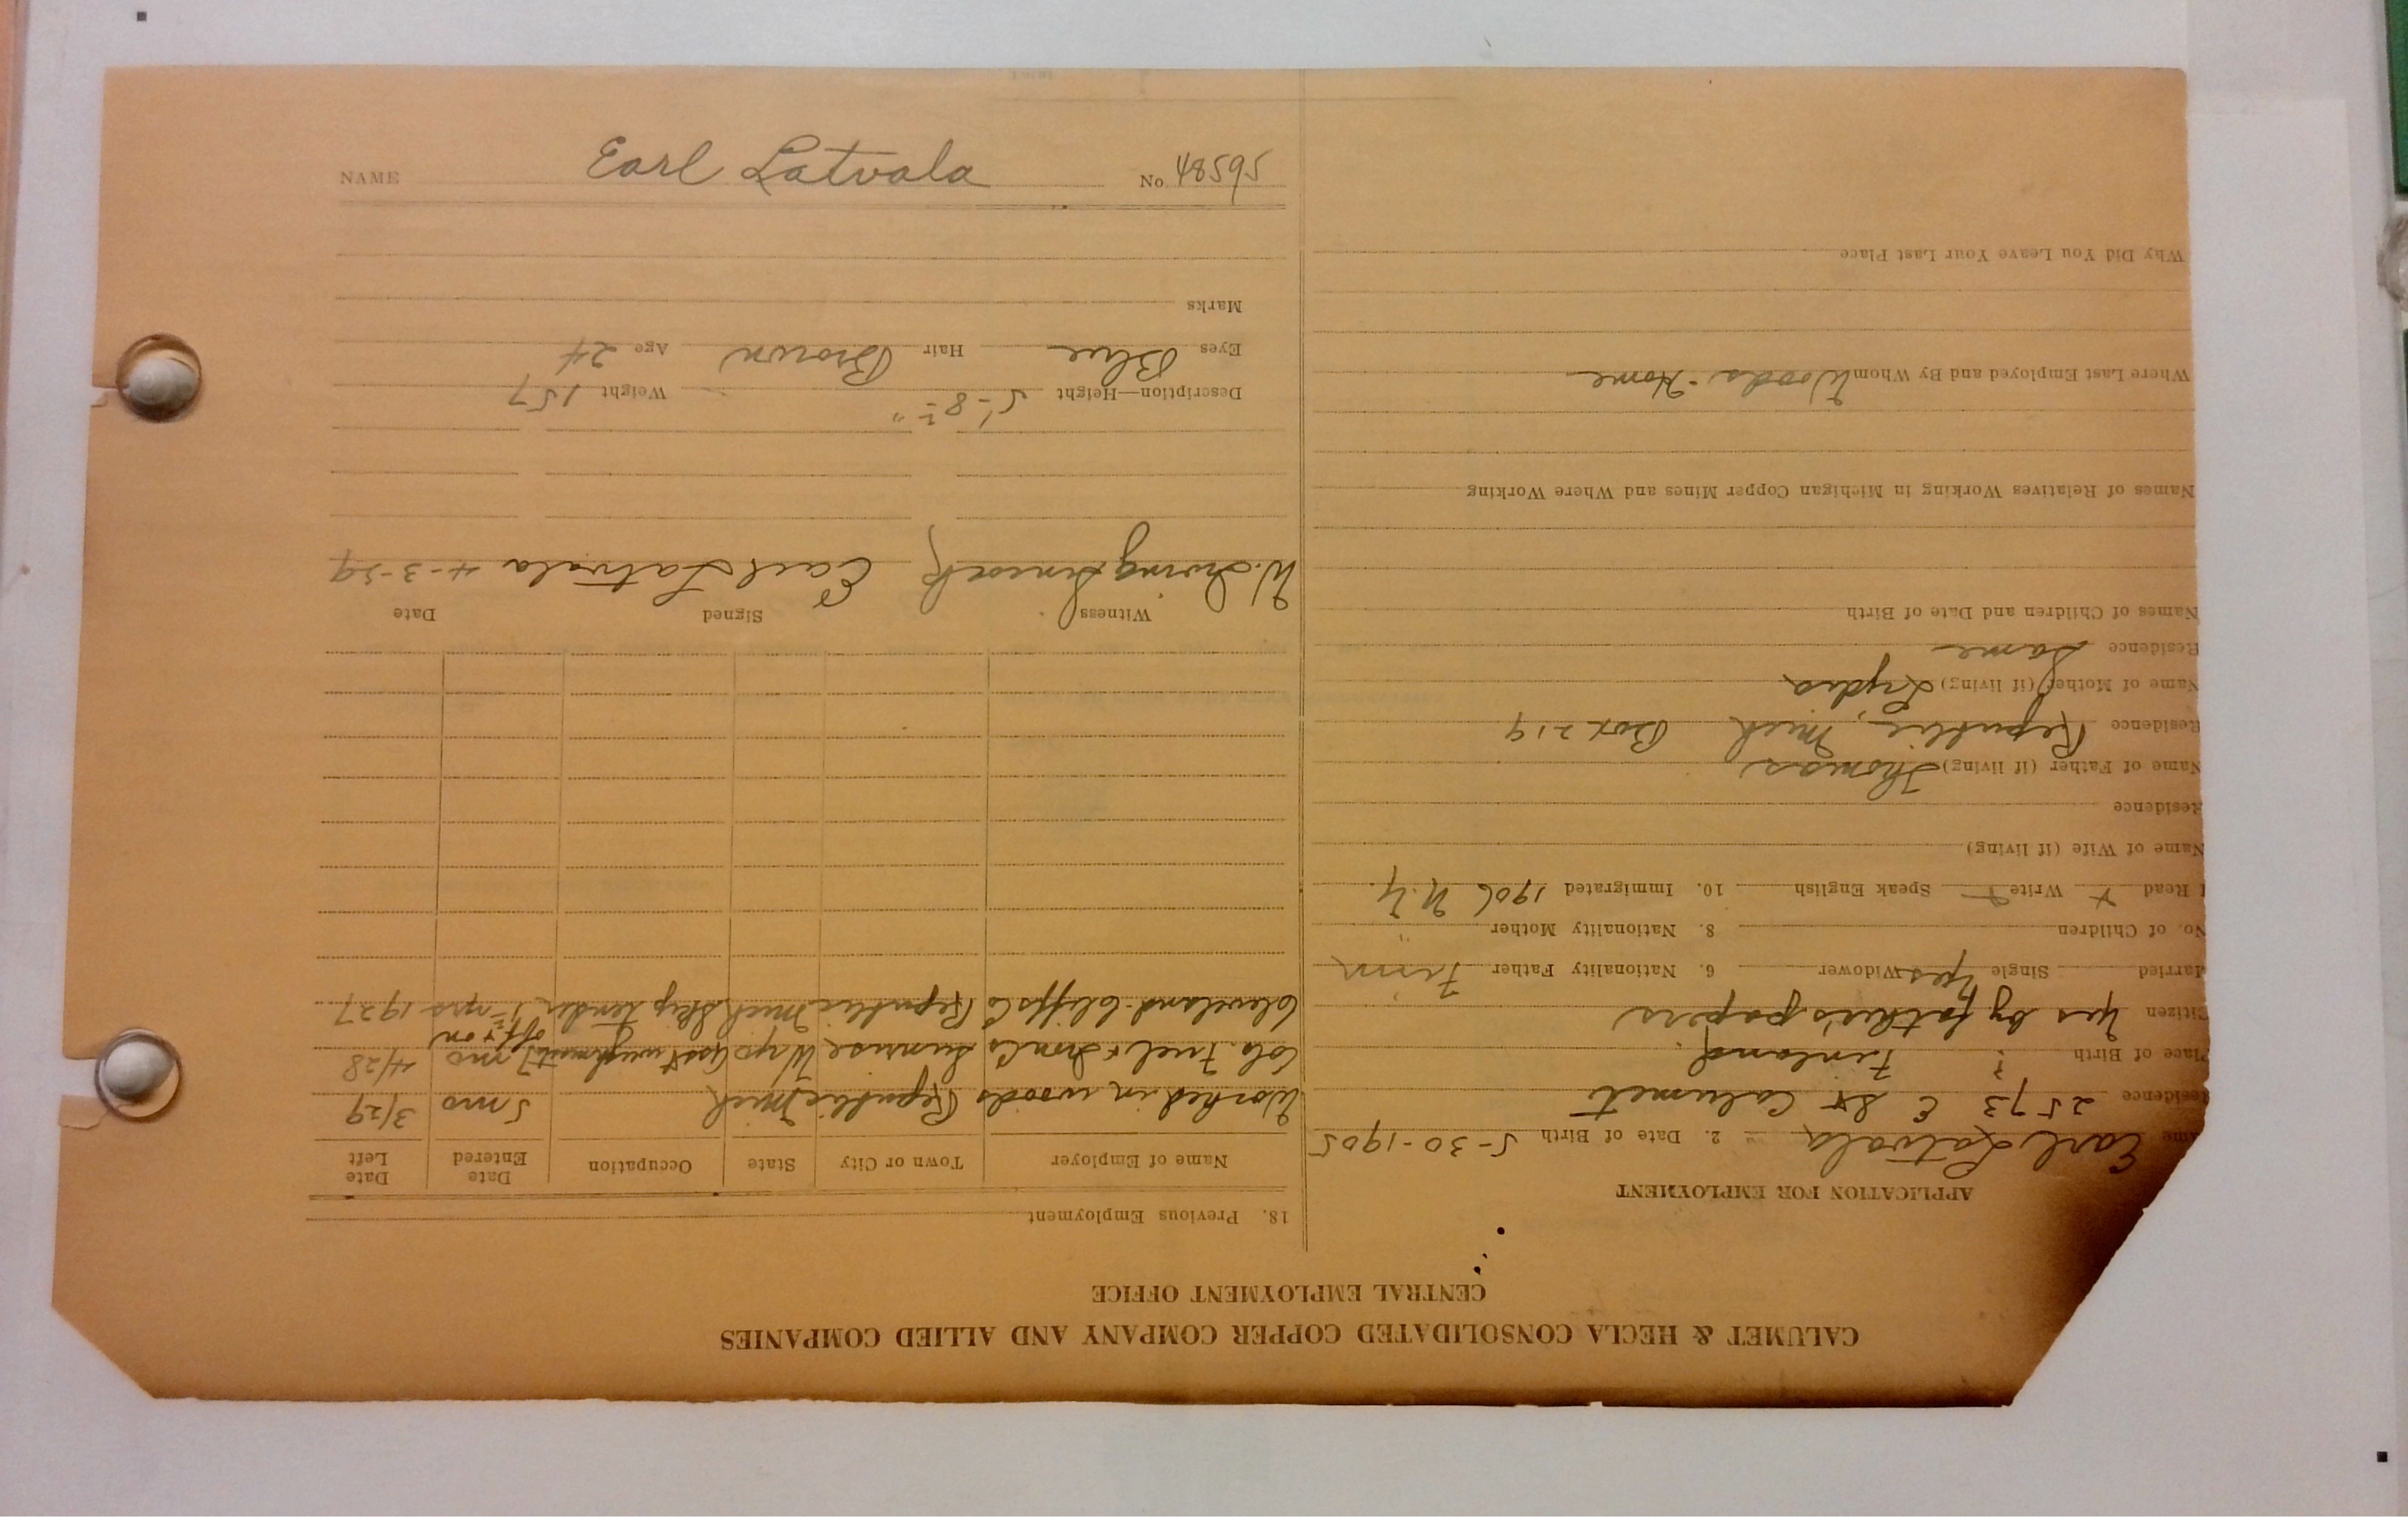 CALUMET & HECLA CONSOLIDATED COPPER COMPANY AND ALLIED COMPANIES
CENTRAL EMPLOYMENT OFFICE
APPLICATION FOR EMPLOYMENT
ame Earl Latvala 2. Date of Birth 5-30-1905
Residence 2573 E St Calumet
Place of Birth ? Finland.
Citizen Yes by father's papers
Married Single Yes Widower 6. Nationality Father Finn
No. of Children 8. Nationality Mother "
Read + Write + Speak English 10. Immigrated 1906 N.Y.
Name of Wife (if living)
Residence
Name of Father (if living) Thomas
Residence Republic, Mich Box 219
Name of Mother (if living) Lydia
Residence Same
Names of Children and Date of Birth
Names of Relatives Working in Michigan Copper Mines and Where Working
Where Last Employed and By Whom Woods - Home
Why Did You Leave Your Last Place
18. Previous Employment
Name of Employer Town or City State Occupation Date Entered Date Left
Worked in woods Republic Mich 5 mo 3/29
Colo. Fuel & Iron Co Sunrise Wyo 7 mo 4/28
off & on
Cleveland-Cliffs Co Republic Mich Skip Tender 1½ yrs 1927
Witness Signed Date
W. Irving Earl Latvala 4-3-29
Description—Height 5'-8½" Weight 157
Eyes Blue Hair Brown Age 24
Marks
NAME Earl Latvala No 48595